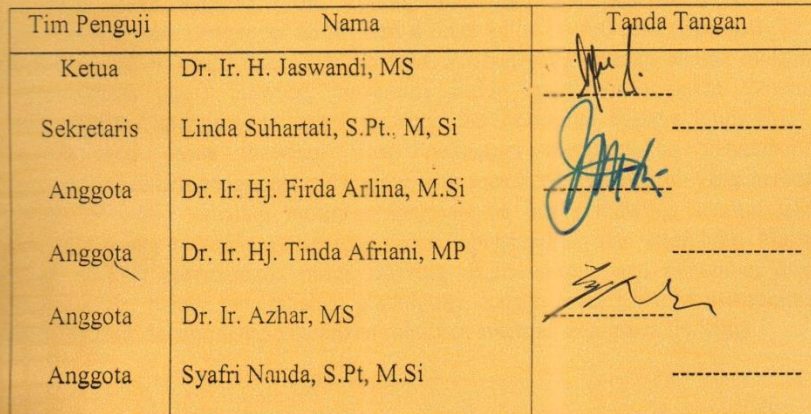 Tim Penguji Nama Tanda Tangan
Ketua Dr. Ir. H. Jaswandi, MS
Sekretaris Linda Suhartati, S.Pt., M, Si
Anggota Dr. Ir. Hj. Firda Arlina, M.Si
Anggota Dr. Ir. Hj. Tinda Afriani, MP
Anggota Dr. Ir. Azhar, MS
Anggota Syafri Nanda, S.Pt, M.Si